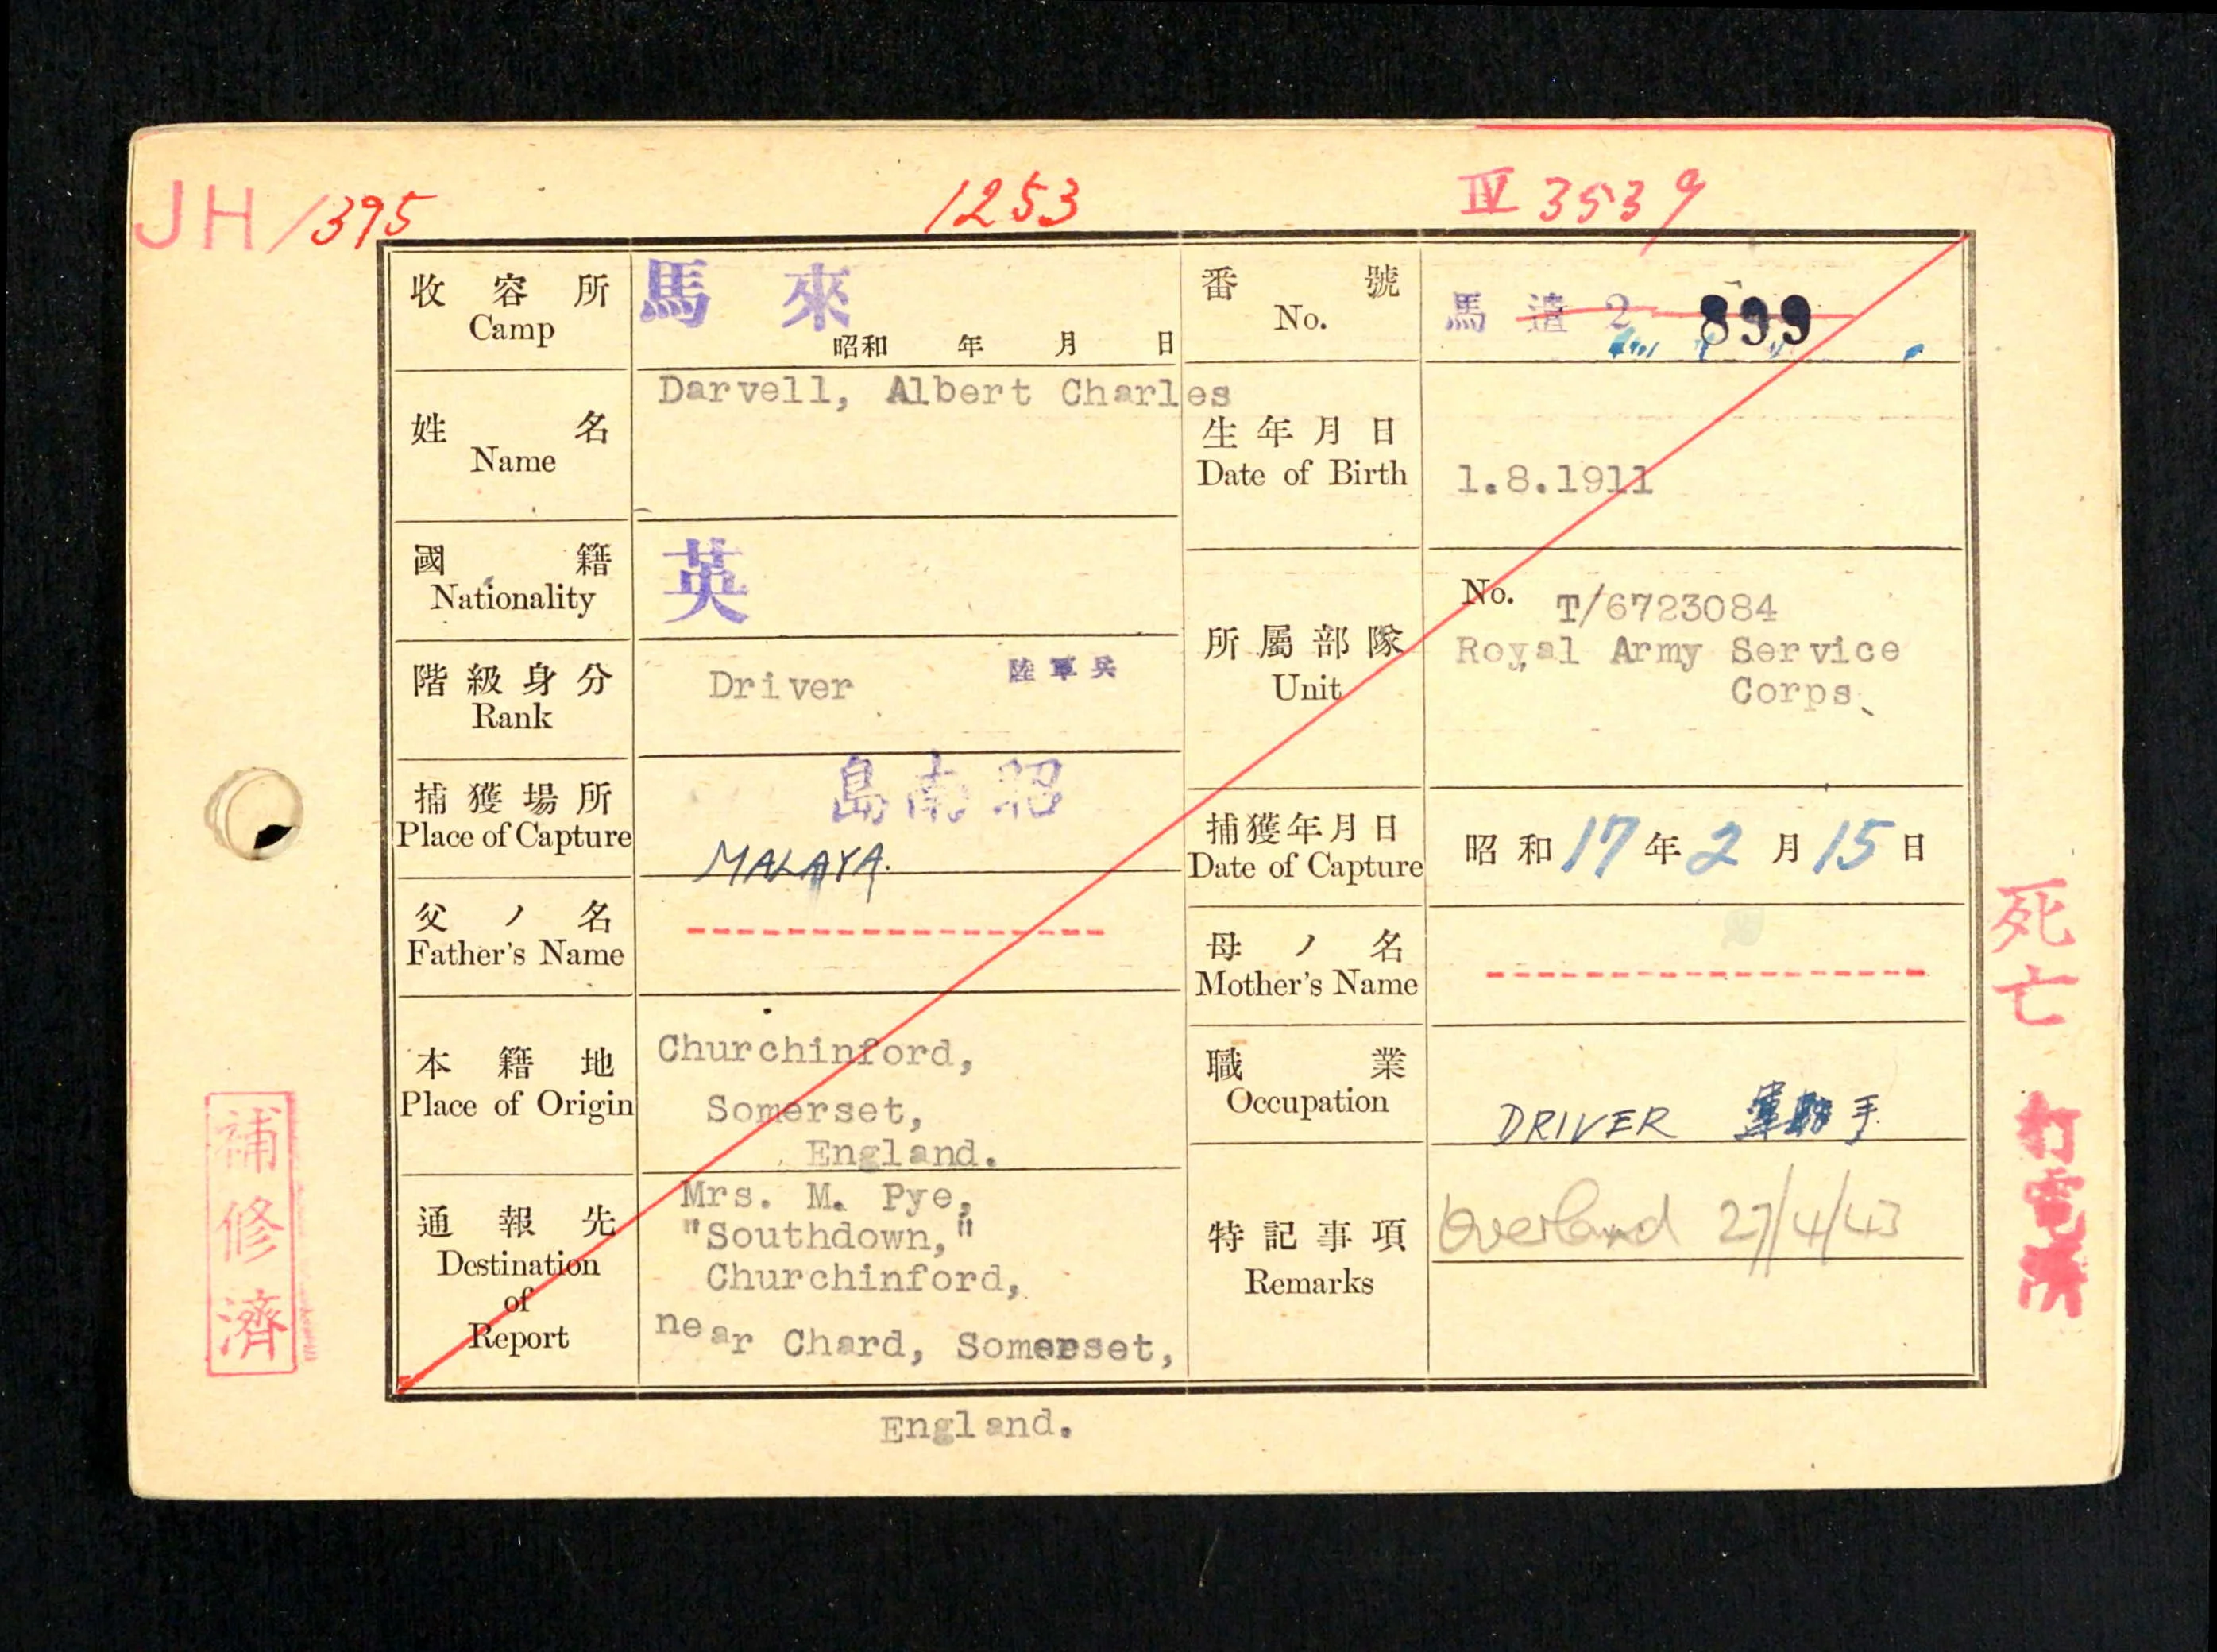 JH/1395
1253
IV 3539
收容所
Camp
馬來
昭和 年 月 日
番號
No.
馬 遣 2 899
姓名
Name
Darvell, Albert Charles
生年月日
Date of Birth
1.8.1911
國籍
Nationality
英
所屬部隊
Unit
No. T/6723084
Royal Army Service
Corps
階級身分
Rank
Driver 陸軍兵
捕獲場所
Place of Capture
島南昭
MALAYA.
捕獲年月日
Date of Capture
昭和17年2月15日
父ノ名
Father's Name
母ノ名
Mother's Name
本籍地
Place of Origin
Churchinford,
Somerset,
England.
職業
Occupation
DRIVER 運轉手
通報先
Destination
of
Report
Mrs. M. Pye,
"Southdown,"
Churchinford,
near Chard, Somerset,
England.
特記事項
Remarks
Overland 27/4/43
死亡
打電済
補修濟